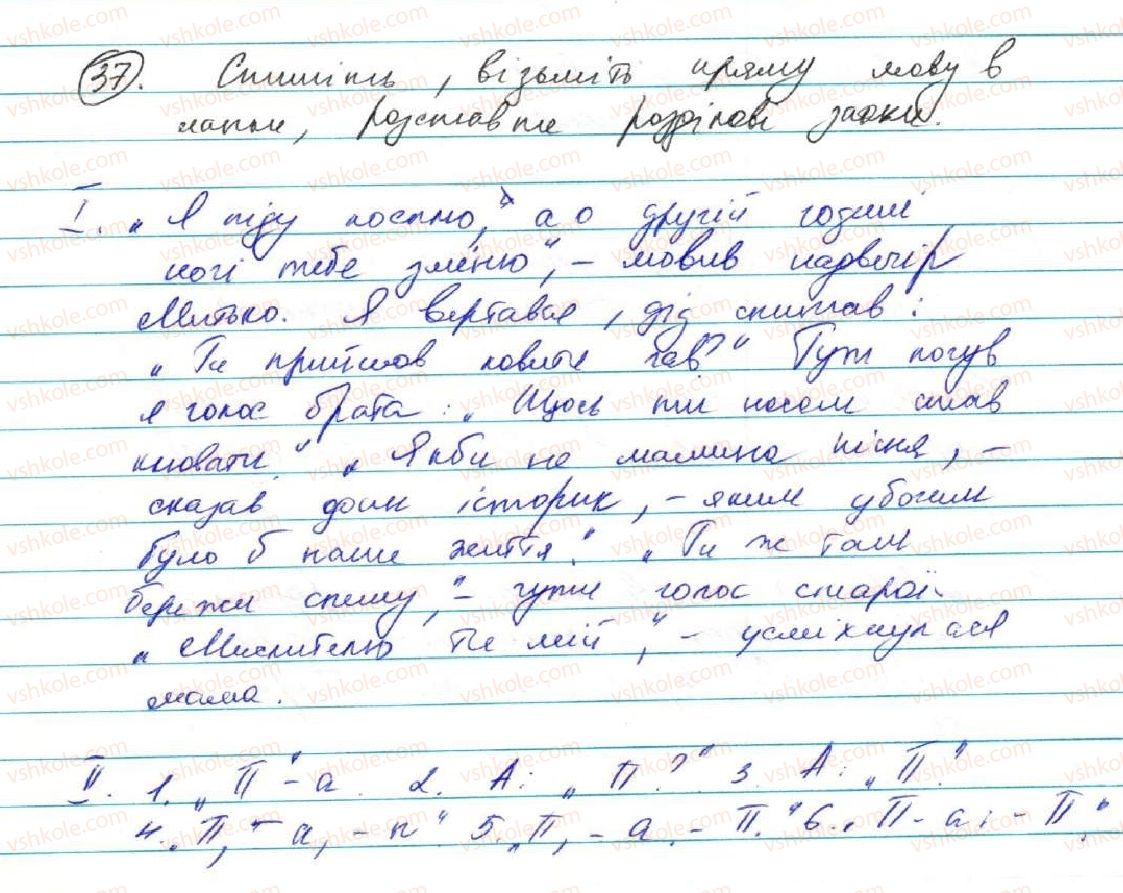 37. Спишіть, візьміть пряму мову в
лапки, розставте розділові знаки.
I. „Я піду косити, а о другій годині
ночі тебе зміню", – мовив надвечір
Митько. Я вертався, дід спитав:
„Ти прийшов ловити гав?" Тут почув
я голос брата: „Щось ти носом став
клювати" „Якби не мамина пісня, –
сказав один історик, – яким убогим
було б наше життя." „Ти ж там
бережи спину," – чути голос старої.
„Мислителю ти мій," – усміхнулася
мама.
II. 1. „П" – а. 2. А: „П?" 3. А: „П."
4. „П, – а, – п" 5. „П, – а. – П." 6. „П – а: – П."
vshkole.com